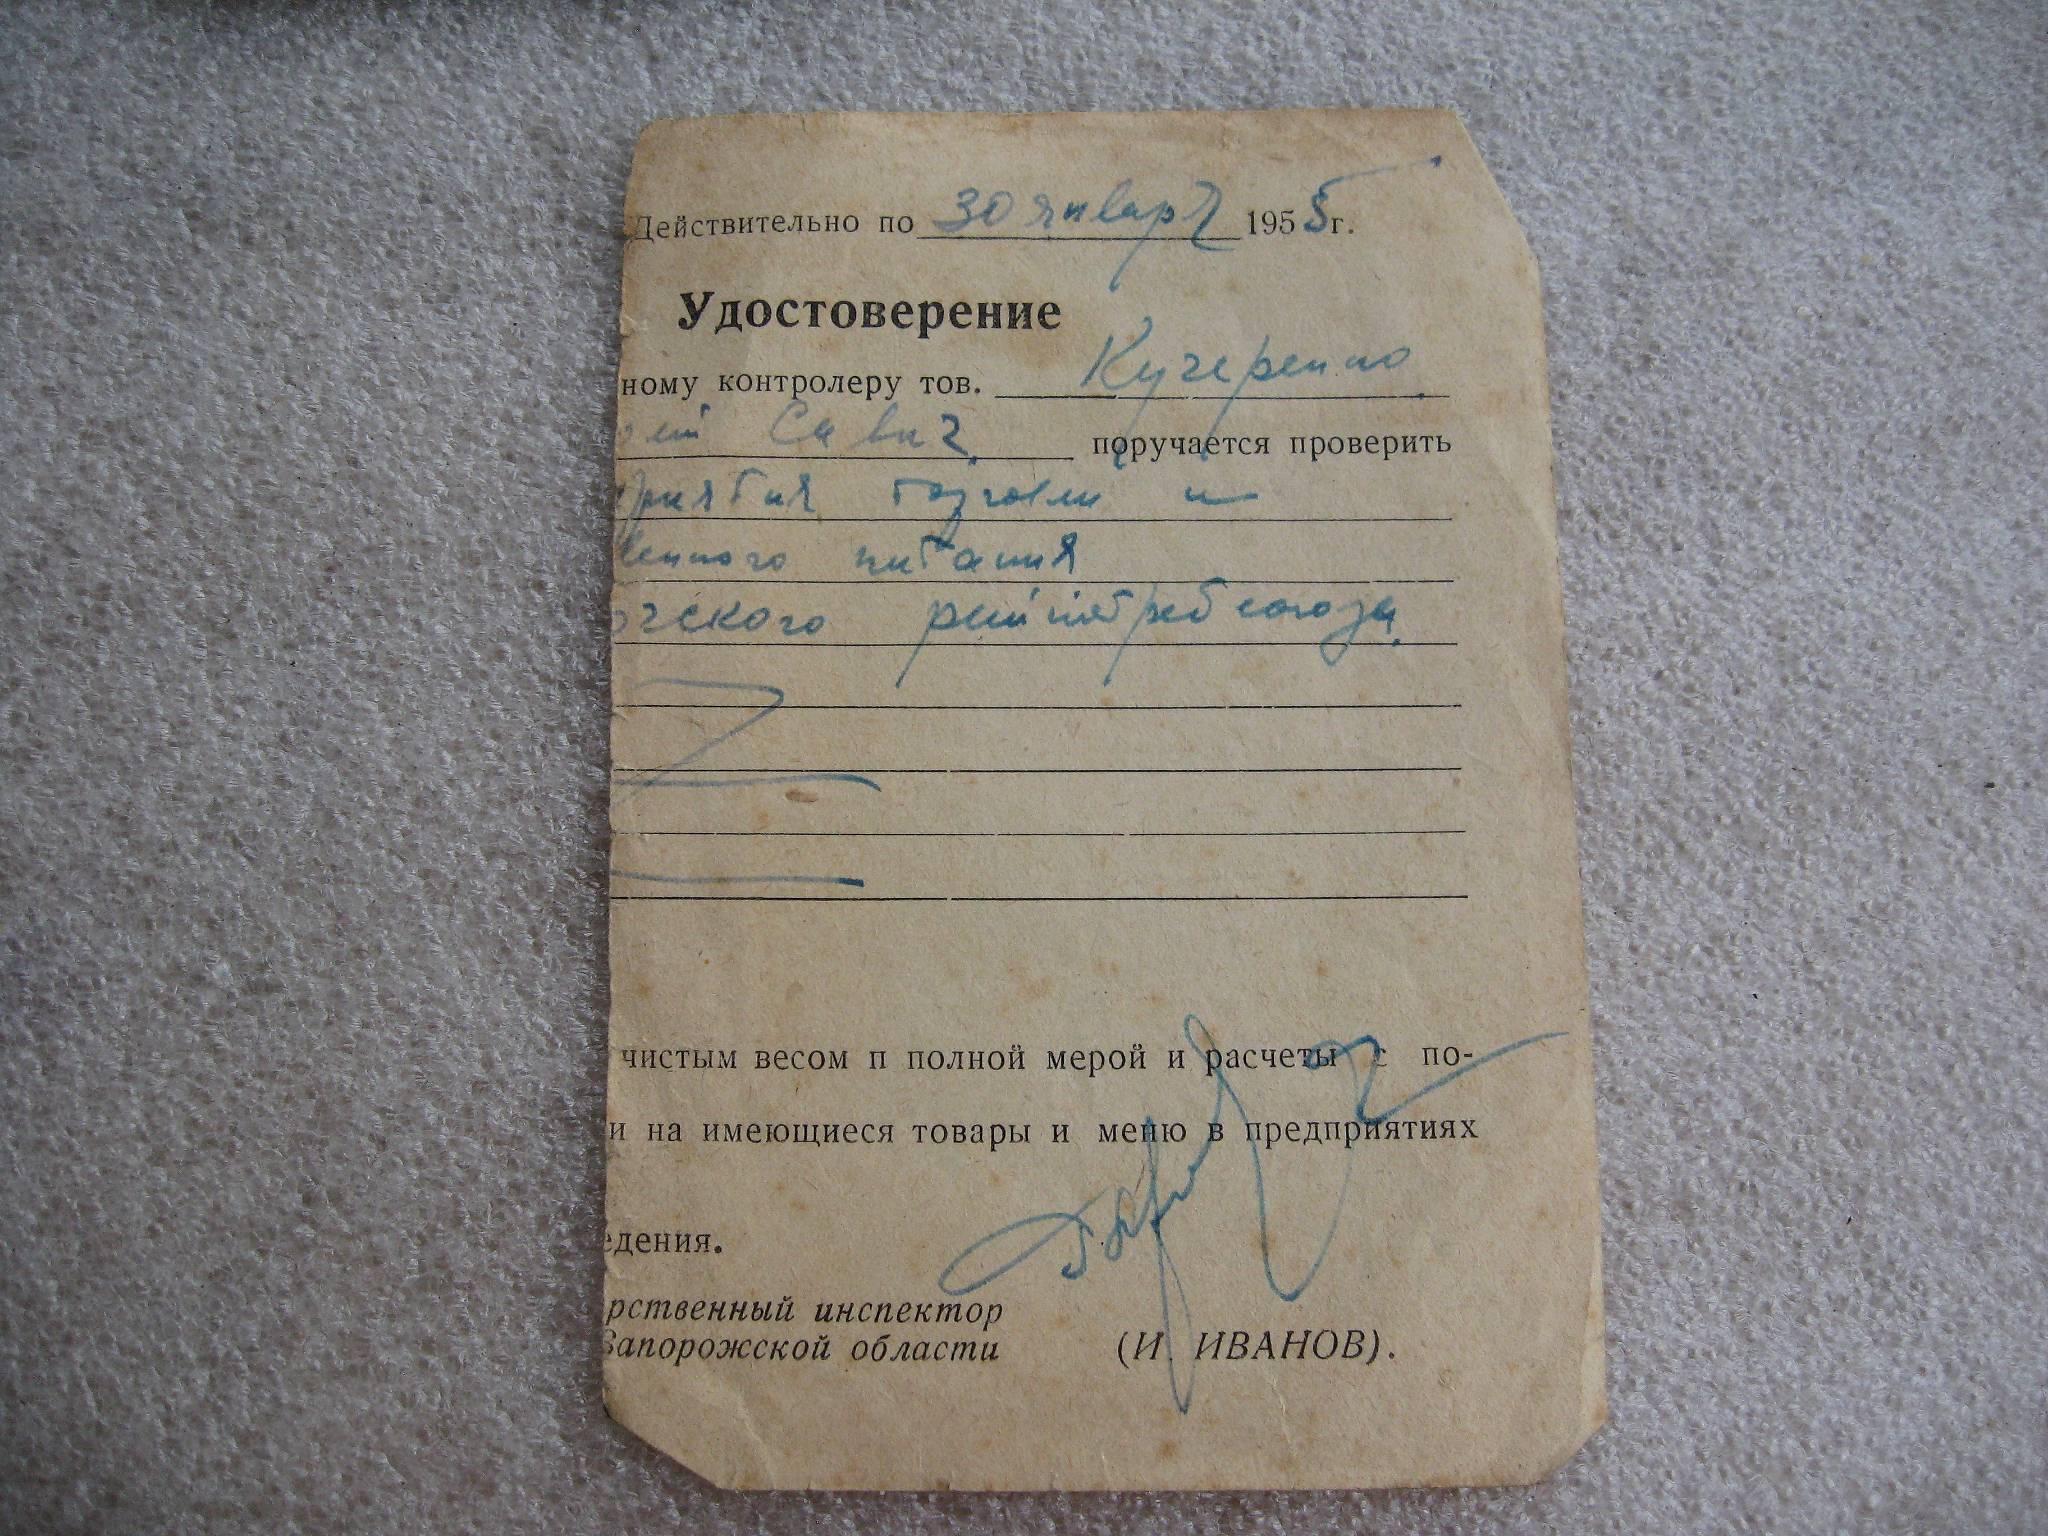 Действительно по 30 января 1955 г.
Удостоверение
ному контролеру тов. Кучеренко
Савич. поручается проверить
риятия торговли и
венного питания
райпотребсоюза.
чистым весом п полной мерой и расчеты с по-
и на имеющиеся товары и меню в предприятиях
едения.
рственный инспектор
Запорожской области (И. ИВАНОВ).